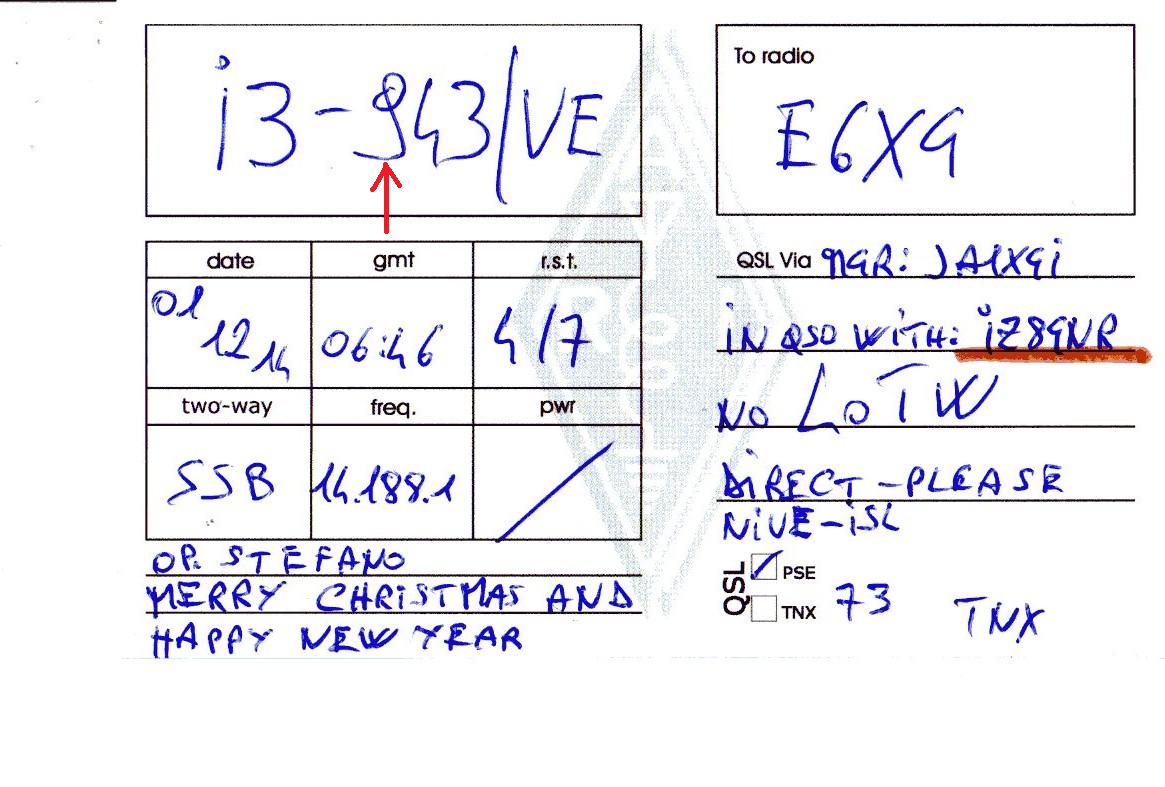 i3-943/VE
To radio
E6XG
date gmt r.s.t.
01 12 14 06:46 4/7
two-way freq. pwr
SSB 14.188.1 /
OP. STEFANO
MERRY CHRISTMAS AND
HAPPY NEW YEAR
QSL Via MGR: JA1XGi
iN QSO WiTH: iZ8GNR
NO LoTW
DiRECT-PLEASE
NiUE-iSL
QSL PSE
TNX 73 TNX